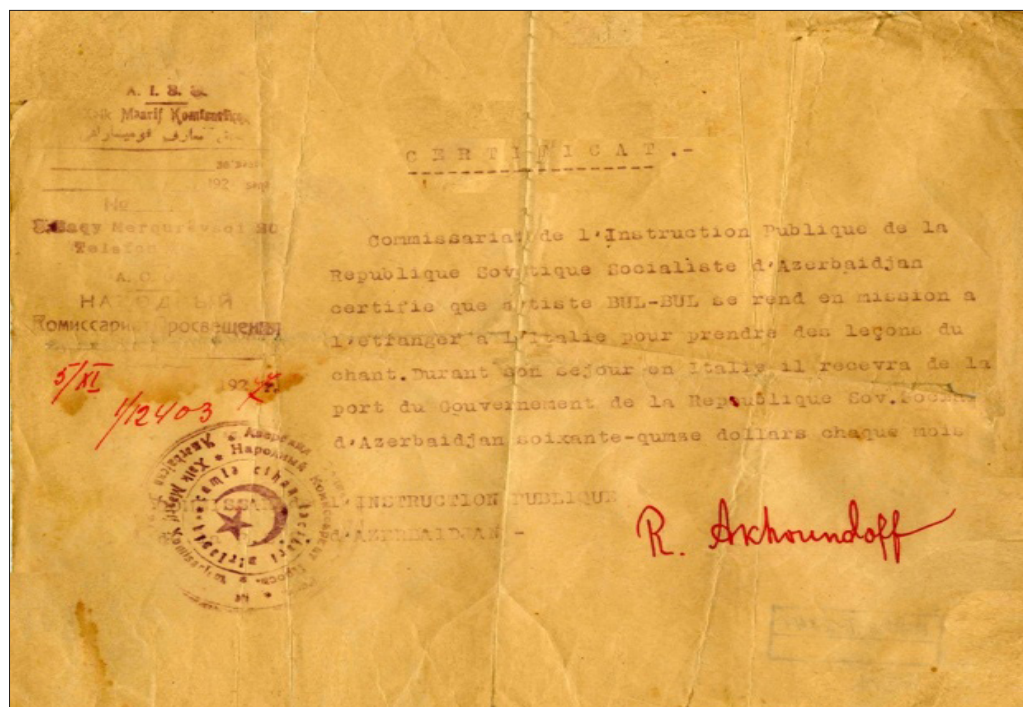 A. I. S. Ş.
Maarif Komisarlığı
معارف قوميسارلغى
192
No
Telefon
A. C.
НАРОДНЫЙ
Комиссариат Просвещения
5/XI
192
1/12403
CERTIFICAT.-
Commissariat de l'Instruction Publique de la
Republique Sovetique Socialiste d'Azerbaidjan
certifie que artiste BUL-BUL se rend en mission a
l'etranger a l'Italie pour prendre des leçons du
chant.Durant son sejour en Italie il recevra de la
port du Gouvernement de la Republique Sov.
d'Azerbaidjan soixante-qumze dollars chaque mois
L'INSTRUCTION PUBLIQUE
d'AZERBAIDJAN -
R. Akhoundoff